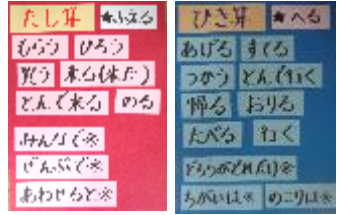 たし算 ★ふえる
もらう ひろう
買う 来る(来た)
とんで来る のる
みんなで※
ぜんぶで※
あわせると※
ひき算 ★へる
あげる すてる
つかう とんで行く
帰る おりる
たべる 行く
どちらがどれだけ※
ちがいは※ のこりは※